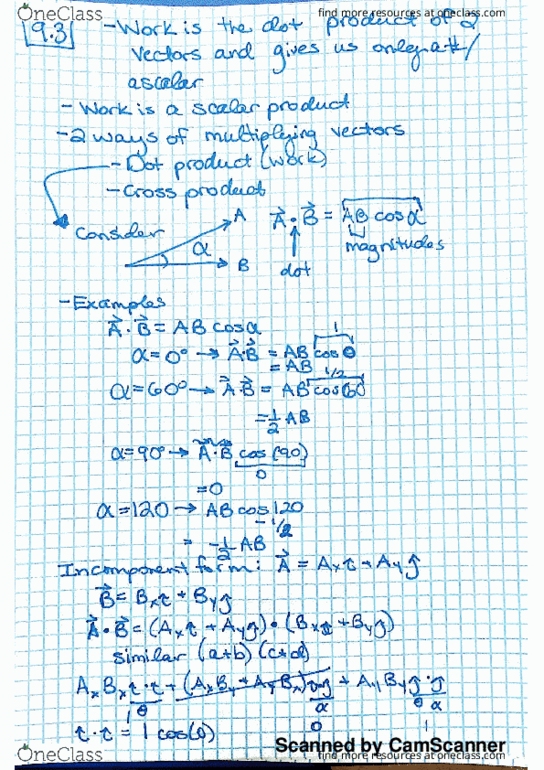 OneClass
find more resources at oneclass.com
9.3 - Work is the dot product of 2
vectors and gives us only a #/
a scalar
- Work is a scalar product
- 2 ways of multiplying vectors
- Dot product (work)
- Cross product
Consider
A
α
B
A⃗ · B⃗ = AB cos α
magnitudes
dot
- Examples
A⃗ · B⃗ = AB cos α
1
α = 0° → A⃗·B⃗ = AB cos 0
= AB
1/2
α = 60° → A⃗·B⃗ = AB cos 60
= 1/2 AB
α = 90° → A⃗·B⃗ cos (90)
0
= 0
α = 120 → AB cos 120
-1/2
= -1/2 AB
In component form: A⃗ = Axî + Ayĵ
B⃗ = Bxî + Byĵ
A⃗·B⃗ = (Axî + Ayĵ) · (Bxî + Byĵ)
similar (a+b) (c+d)
AxBx î·î + (AxBy + AyBx) î·ĵ + AyBy ĵ·ĵ
î·î = 1 cos(0)
0
1
Scanned by CamScanner
OneClass
find more resources at oneclass.com